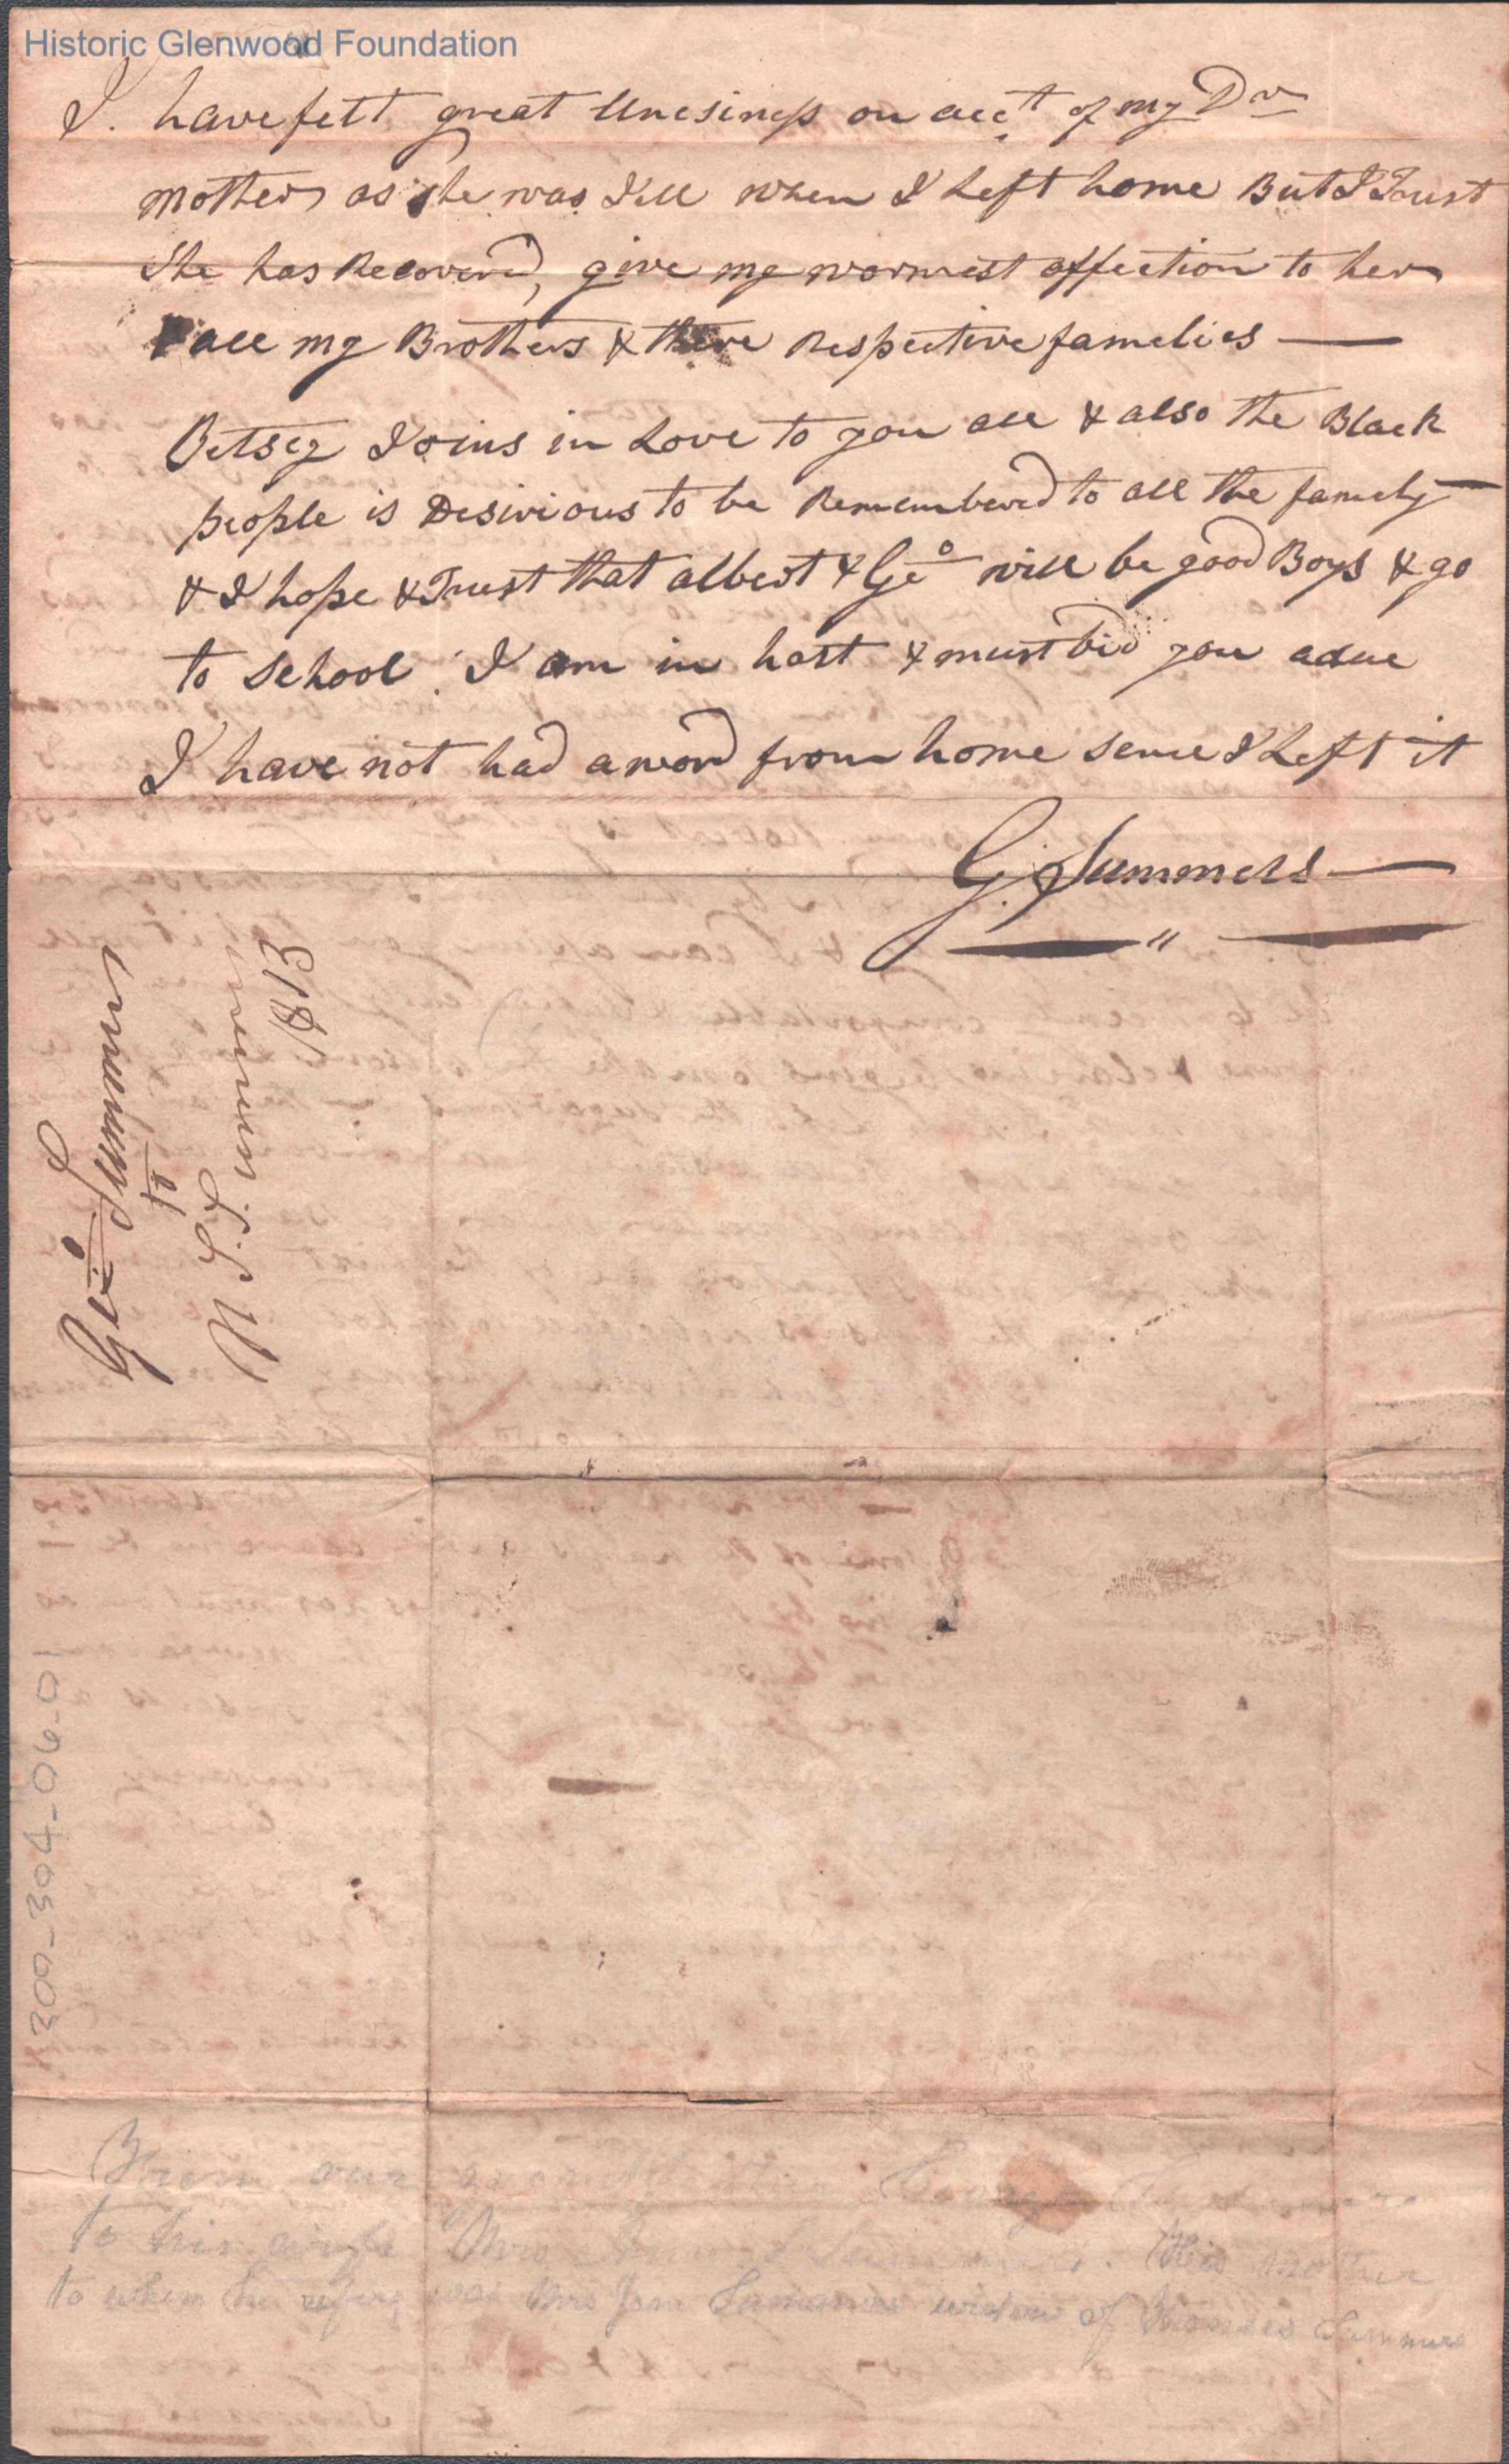 Historic Glenwood Foundation
I. have felt great Unesiness on acct of my Dr
Mother as she was Ill when I Left home But I Trust
She has Recovered, give my warmest affection to her
& all my Brothers & there Respective famelies —
Betsey Joins in Love to you all & also the Black
people is Desirious to be Remembered to all the famely —
& I hope & Trust that albert & Geo will be good Boys & go
to School I am in hast & must bid you adue
I have not had a word from home sence I Left it
G. Summers —
Geo Summers
to
N. S. Summers
1813
200-304-06-01
From our grandfather George Summers
to his wife Mrs Summers. His mother
to whom he refers was Mrs Jane Summers widow of Francis Summers